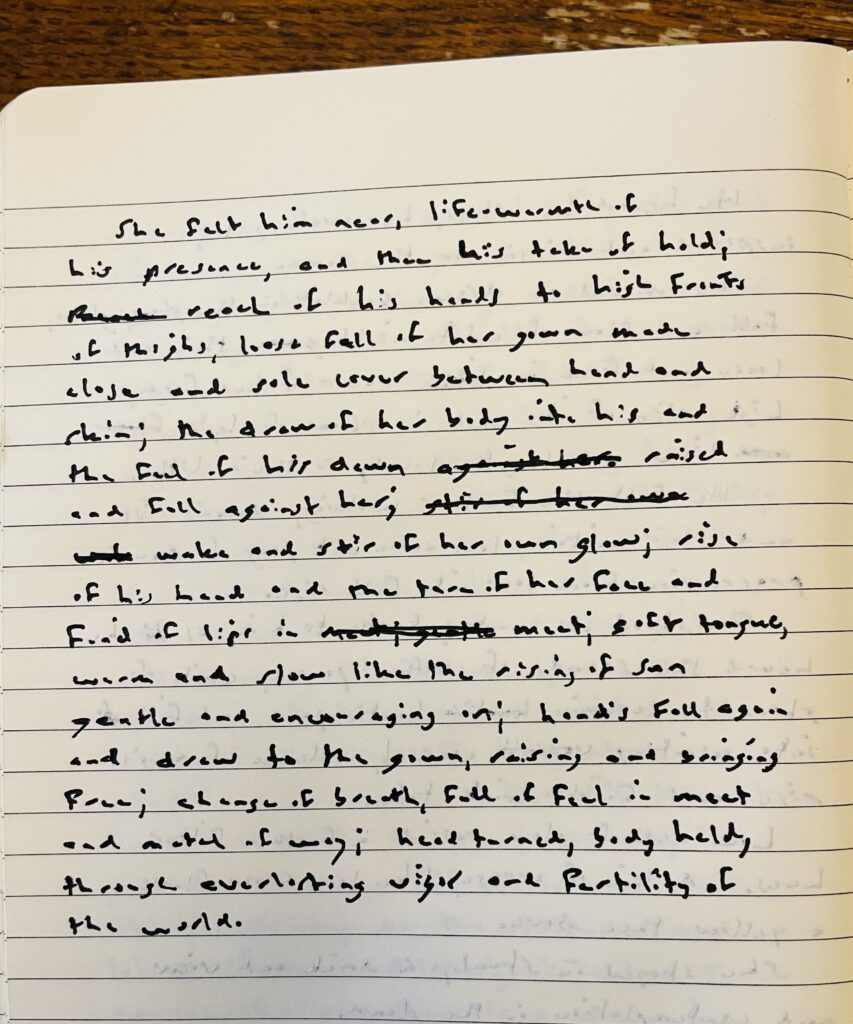 She felt him near, life-warmth of
his presence, and then his take of hold;
reach of his hands to high fronts
of thighs; loose fall of her gown made
close and sole cover between hand and
skin; the draw of her body into his and
the feel of his dawn against her raised
and full against her; stir of her own
wake and stir of her own glow; rise
of his hand and the turn of her face and
find of lips in meet; soft tongue,
warm and slow like the rising of sun
gentle and encouraging on; hands fall again
and draw to the gown, raising and bringing
free; change of breath, full of feel in meet
and match of way; head turned, body held,
through everlasting vigor and fertility of
the world.